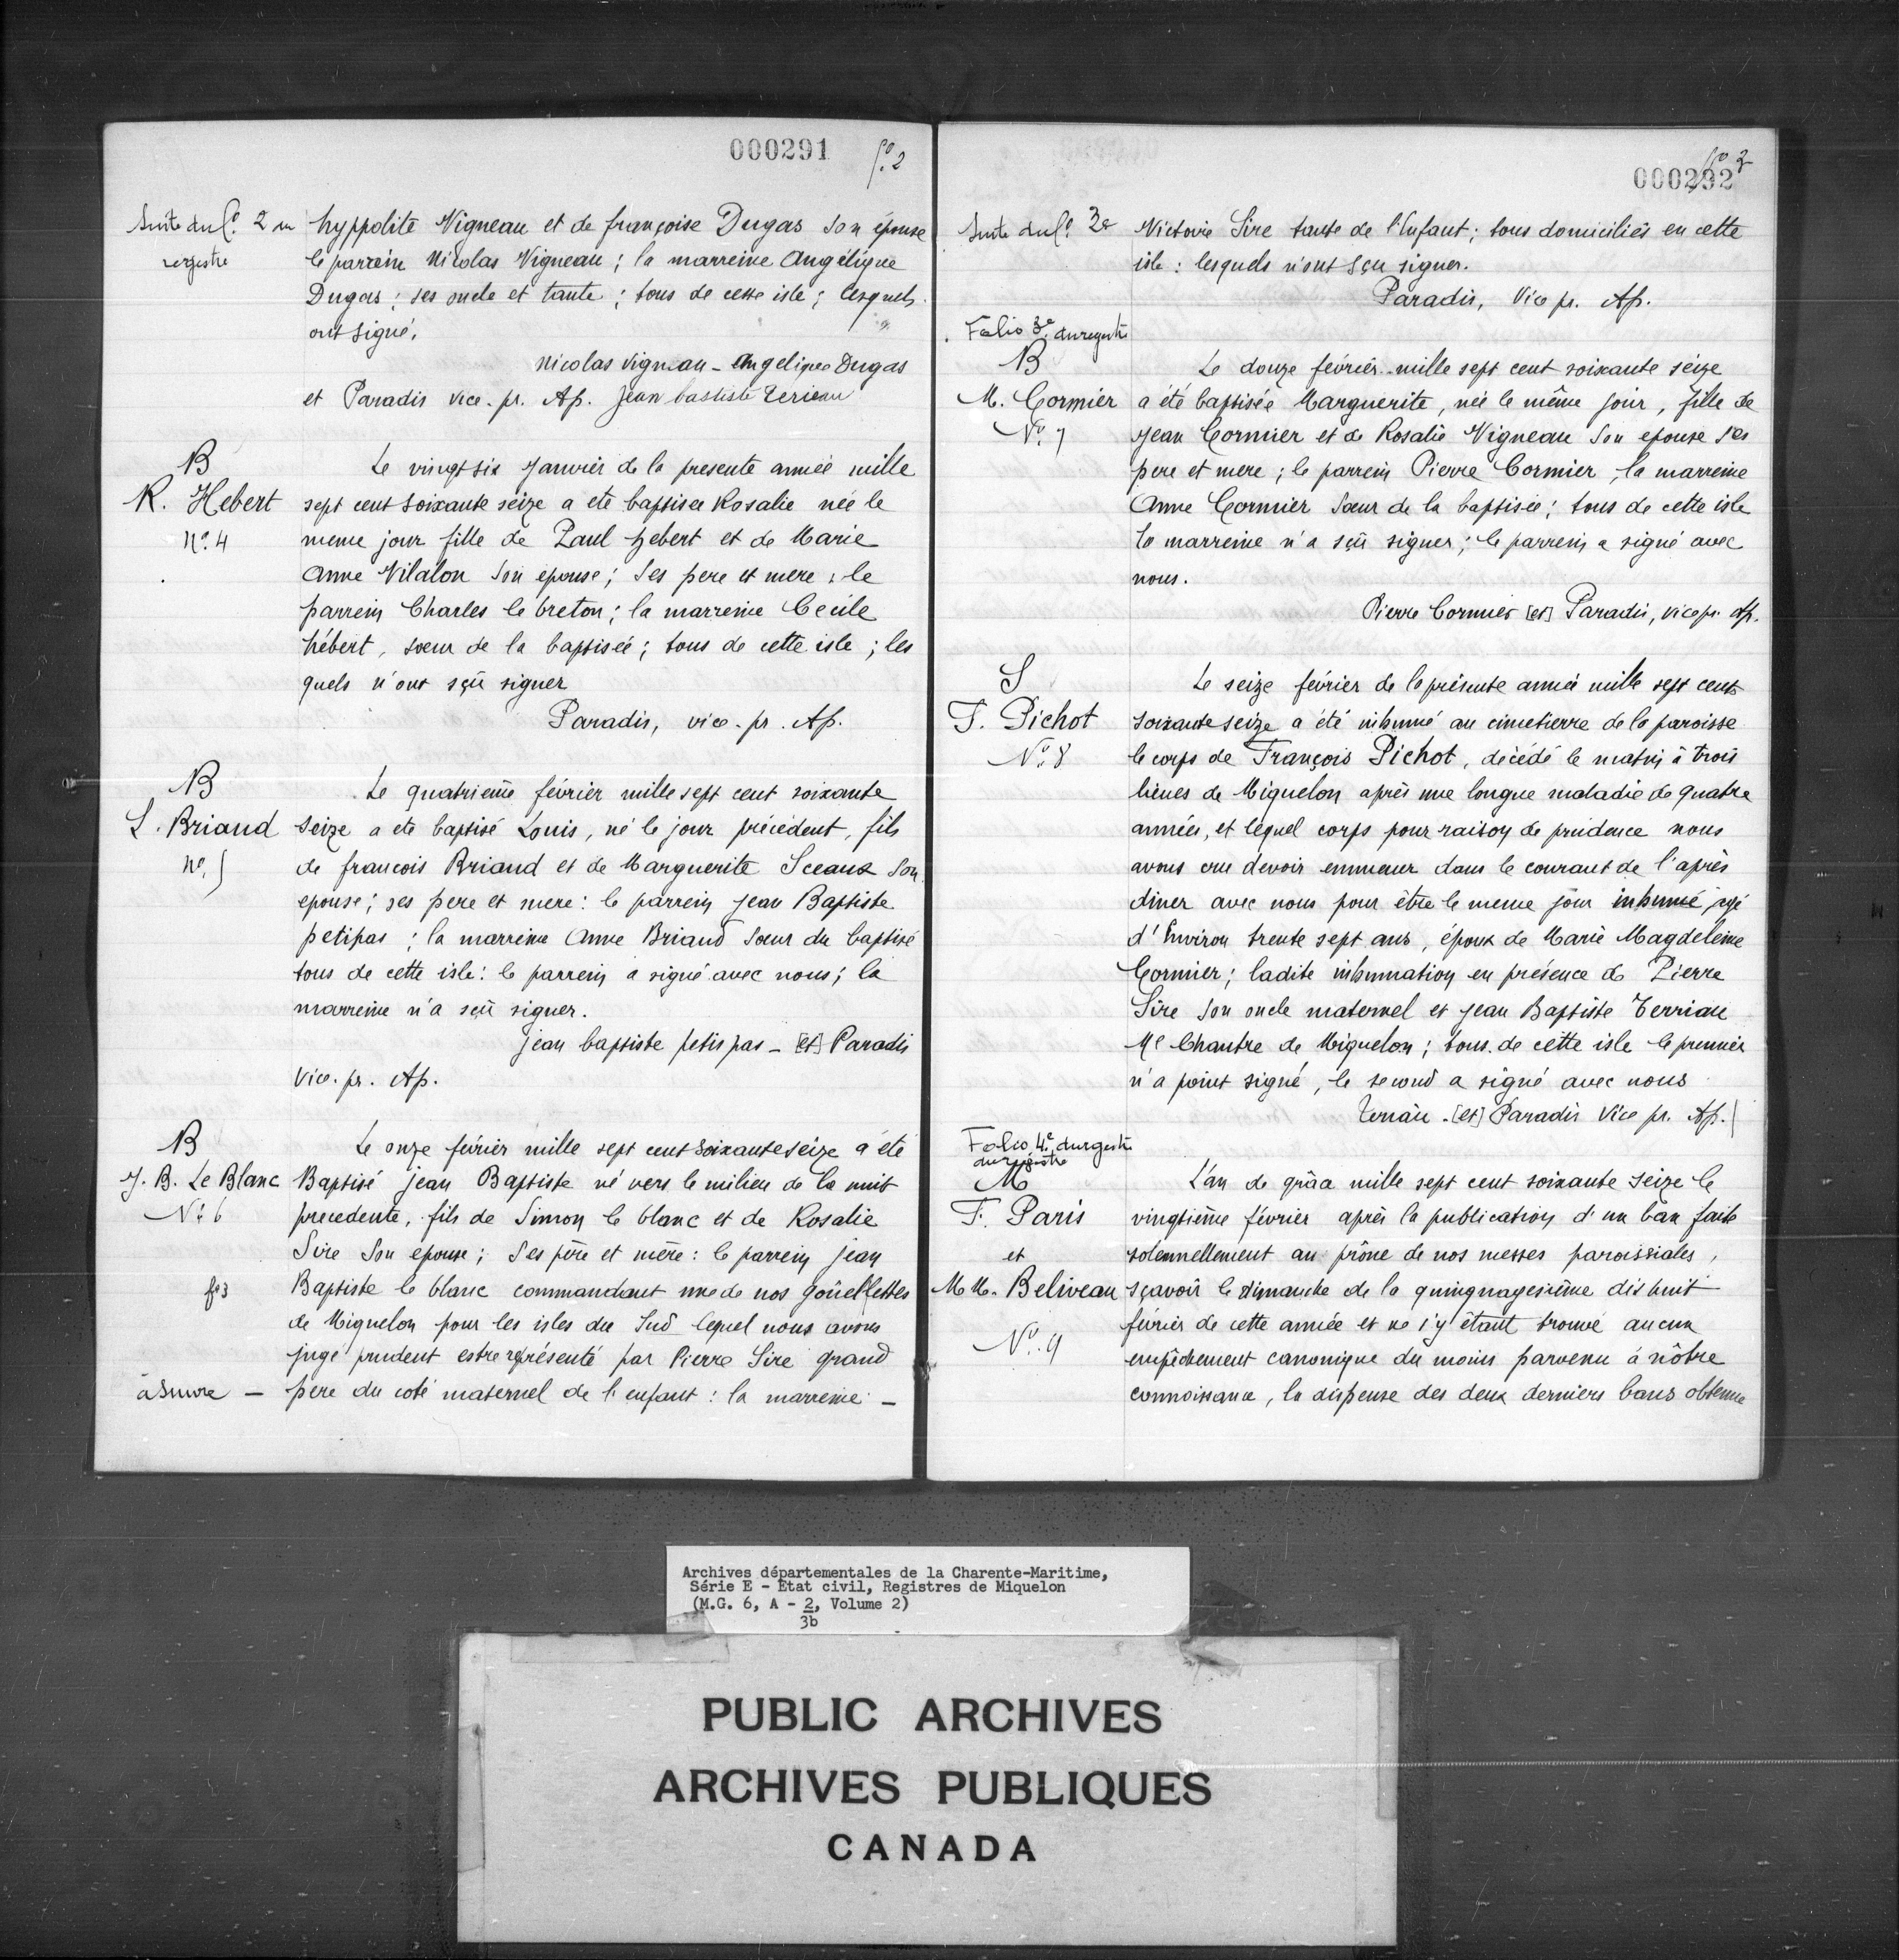 000291 fo. 2
Suite du fo. 2 du hyppolite Vigneau et de françoise Dugas son épouse
regestre le parrein Nicolas Vigneau ; la marreine Angélique
Dugas ; ses oncle et tante ; tous de cette isle ; lesquels
ont signé.
Nicolas Vigneau - Angelique Dugas
et Paradis vice. pr. Ap. Jean bastiste Terieau
B Le vingt six Janvier de la presente année mille
R. Hebert sept cent soixante seize a ete baptisee Rosalie née le
No. 4 meme jour fille de Paul hebert et de Marie
Anne Vilalon son épouse ; ses pere et mere ; le
parrein Charles le breton ; la marreine Cecile
hébert, sœur de la baptisée ; tous de cette isle ; les
quels n'ont sçû signer
Paradis, vice. pr. Ap.
B Le quatrieme février mille sept cent soixante
L. Briand seize a ete baptisé Louis, né le jour précédent, fils
No. 5 de francois Briand et de Marguerite Sceaux son
epouse ; ses pere et mere : le parrein Jean Baptiste
petipas ; la marreine Anne Briand sœur du baptisé
tous de cette isle : le parrein a signé avec nous ; la
marreine n'a sçû signer.
jean baptiste petis pas - [et] Paradis
Vice. pr. Ap.
B Le onze février mille sept cent soixante seize a été
J. B. Le Blanc Baptisé jean Baptiste né vers le milieu de la nuit
No. 6 precedente, fils de Simon le blanc et de Rosalie
Sire son epouse ; ses père et mère : le parrein jean
fo 3 Baptiste le blanc commandant une de nos goüellettes
de Miquelon pour les isles du Sud lequel nous avons
jugé prudent estre représenté par Pierre Sire grand
à suivre - pere du coté maternel de l'enfant : la marreine -
000292 fo 3
Suite du fo. 3e Victoire Sire tante de l'Enfant ; tous domiciliés en cette
isle : lesquels n'ont sçu signer.
Paradis, Vice pr. Ap.
Folio 3e. du registre
B Le douze février mille sept cent soixante seize
M. Cormier a été baptisée Marguerite, née le même jour, fille de
No. 7 Jean Cormier et de Rosalie Vigneau son epouse ses
pere et mere ; le parrein Pierre Cormier, la marreine
Anne Cormier sœur de la baptisée ; tous de cette isle
la marreine n'a sçû signer ; le parrein a signé avec
nous.
Pierre Cormier [et] Paradis, vice pr. Ap.
S Le seize février de la présente année mille sept cent
F. Pichot soixante seize a été inhumé au cimetierre de la paroisse
No. 8 le corps de François Pichot, décédé le matin à trois
lieues de Miquelon après une longue maladie de quatre
années, et lequel corps pour raison de prudence nous
avons cru devoir emmener dans le courant de l'après
diner avec nous pour être le meme jour inhumé agé
d'Environ trente sept ans, époux de Marie Magdeleine
Cormier ; ladite inhumation en présence de Pierre
Sire son oncle maternel et Jean Baptiste Terriau
Me Chantre de Miquelon ; tous de cette isle le premier
n'a point signé, le second a signé avec nous
Terriau. [et] Paradis Vice pr. Ap.
Folio 4e. du regestre
du registre
M L'an de grâce mille sept cent soixante seize le
F. Paris vingtième février après la publication d'un ban faite
et solennellement au prône de nos messes paroissiales,
M M. Beliveau sçavoir le dimanche de la quinquagesième dishuit
février de cette année et ne s'y étant trouvé aucun
No. 9 empêchement canonique du moins parvenu à nôtre
connoissance, la dispense des deux derniers bans obtenue
Archives départementales de la Charente-Maritime,
Série E - État civil, Registres de Miquelon
(M.G. 6, A - 2, Volume 2)
3b
PUBLIC ARCHIVES
ARCHIVES PUBLIQUES
CANADA